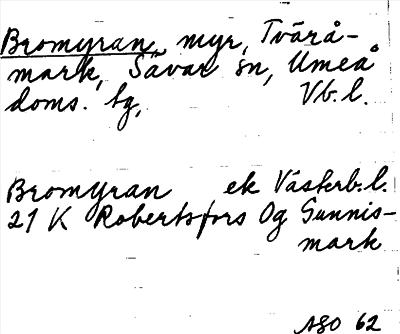 Bromyran, myr, Tvärå-
mark, Sävar sn, Umeå
doms. tg, Vb.l.
Bromyran ek Västerb.l.
21 K Robertsfors Og Gunnis-
mark
ASO 62